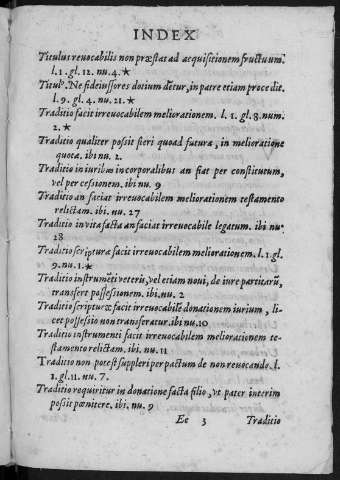 INDEX
Titulus reuocabilis non præstat ad acquisitionem fructuum.
l. 1. gl. 12. nu. 4. ★
Titul⁹. Ne fideiussores dotium dẽtur, in patre etiam procedit.
l. 9. gl. 4. nu. 21. ★
Traditio facit irreuocabilem meliorationem. l. 1. gl. 8. num.
2. ★
Traditio qualiter possit fieri quoad futura, in melioratione
quotæ. ibi nu. 2.
Traditio in iuribus incorporalibus an fiat per constitutum,
vel per cessionem. ibi nu. 9
Traditio an faciat irreuocabilem meliorationem testamento
relictam. ibi. nu. 27
Traditio inuita facta an faciat irreuocabile legatum. ibi nu.
28
Traditio scripturæ facit irreuocabilem meliorationem. l. 1. gl.
9. nu. 1. ★
Traditio instrumẽti veteris, vel etiam noui, de iure partitarũ,
transfert possessionem. ibi. nu. 2
Traditio scripturæ facit irreuocabilẽ donationem iurium, li-
cet possessio non transferatur. ibi nu. 10
Traditio instrumenti facit irreuocabilem meliorationem te-
stamento relictam. ibi. nu. 11
Traditio non potest suppleri per pactum de non reuocando. l.
1. gl. 11. nu. 7.
Traditio requiritur in donatione facta filio, vt pater interim
possit pœnitere. ibi. nu. 9
Ee 3 Traditio